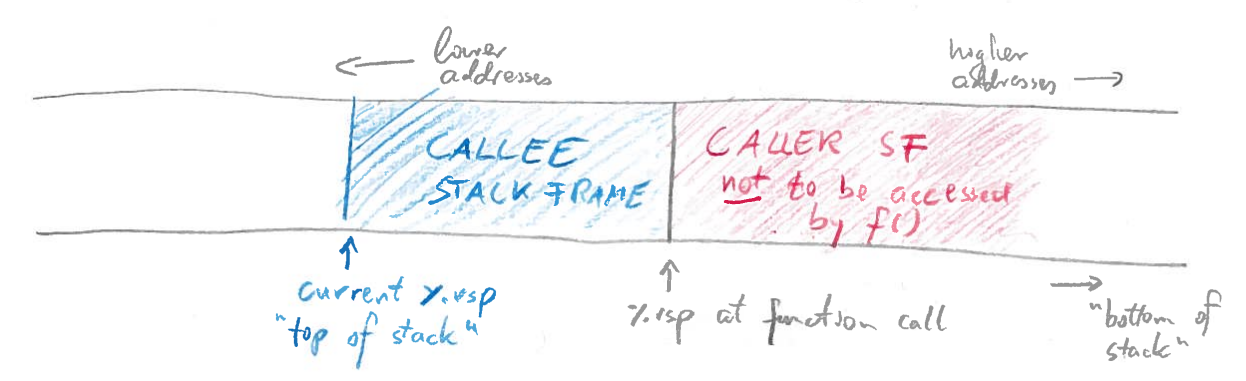 lower
addresses
higher
addresses
CALLEE
STACK FRAME
CALLER SF
not to be accessed
by f()
current %rsp
"top of stack"
%rsp at function call
"bottom of
stack"